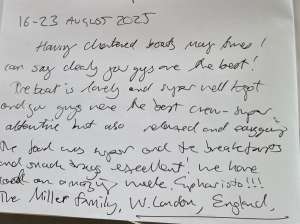 16-23 AUGUST 2025
Having chartered boats many times I
can say clearly you guys are the best!
The boat is lovely and super well kept
and you guys were the best crew - super
attentive but also relaxed and easygoing
The food was super and the breakfasts
and snack excellent! We have
had an amazing week, Epharisto!!!
The Miller family, W. London, England,